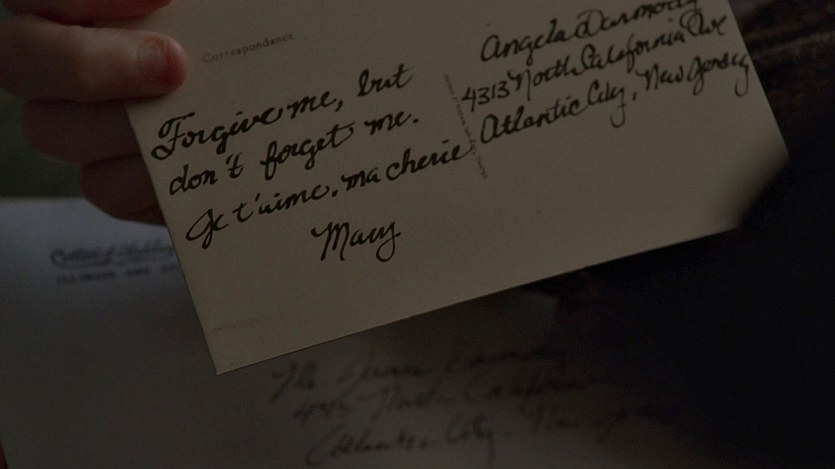 Correspondance
Forgive me, but
don't forget me.
Je t'aime, ma cherie
Mary
Angela Darmody
4313 North California Ave
Atlantic City, New Jersey
North
Atlantic City, New